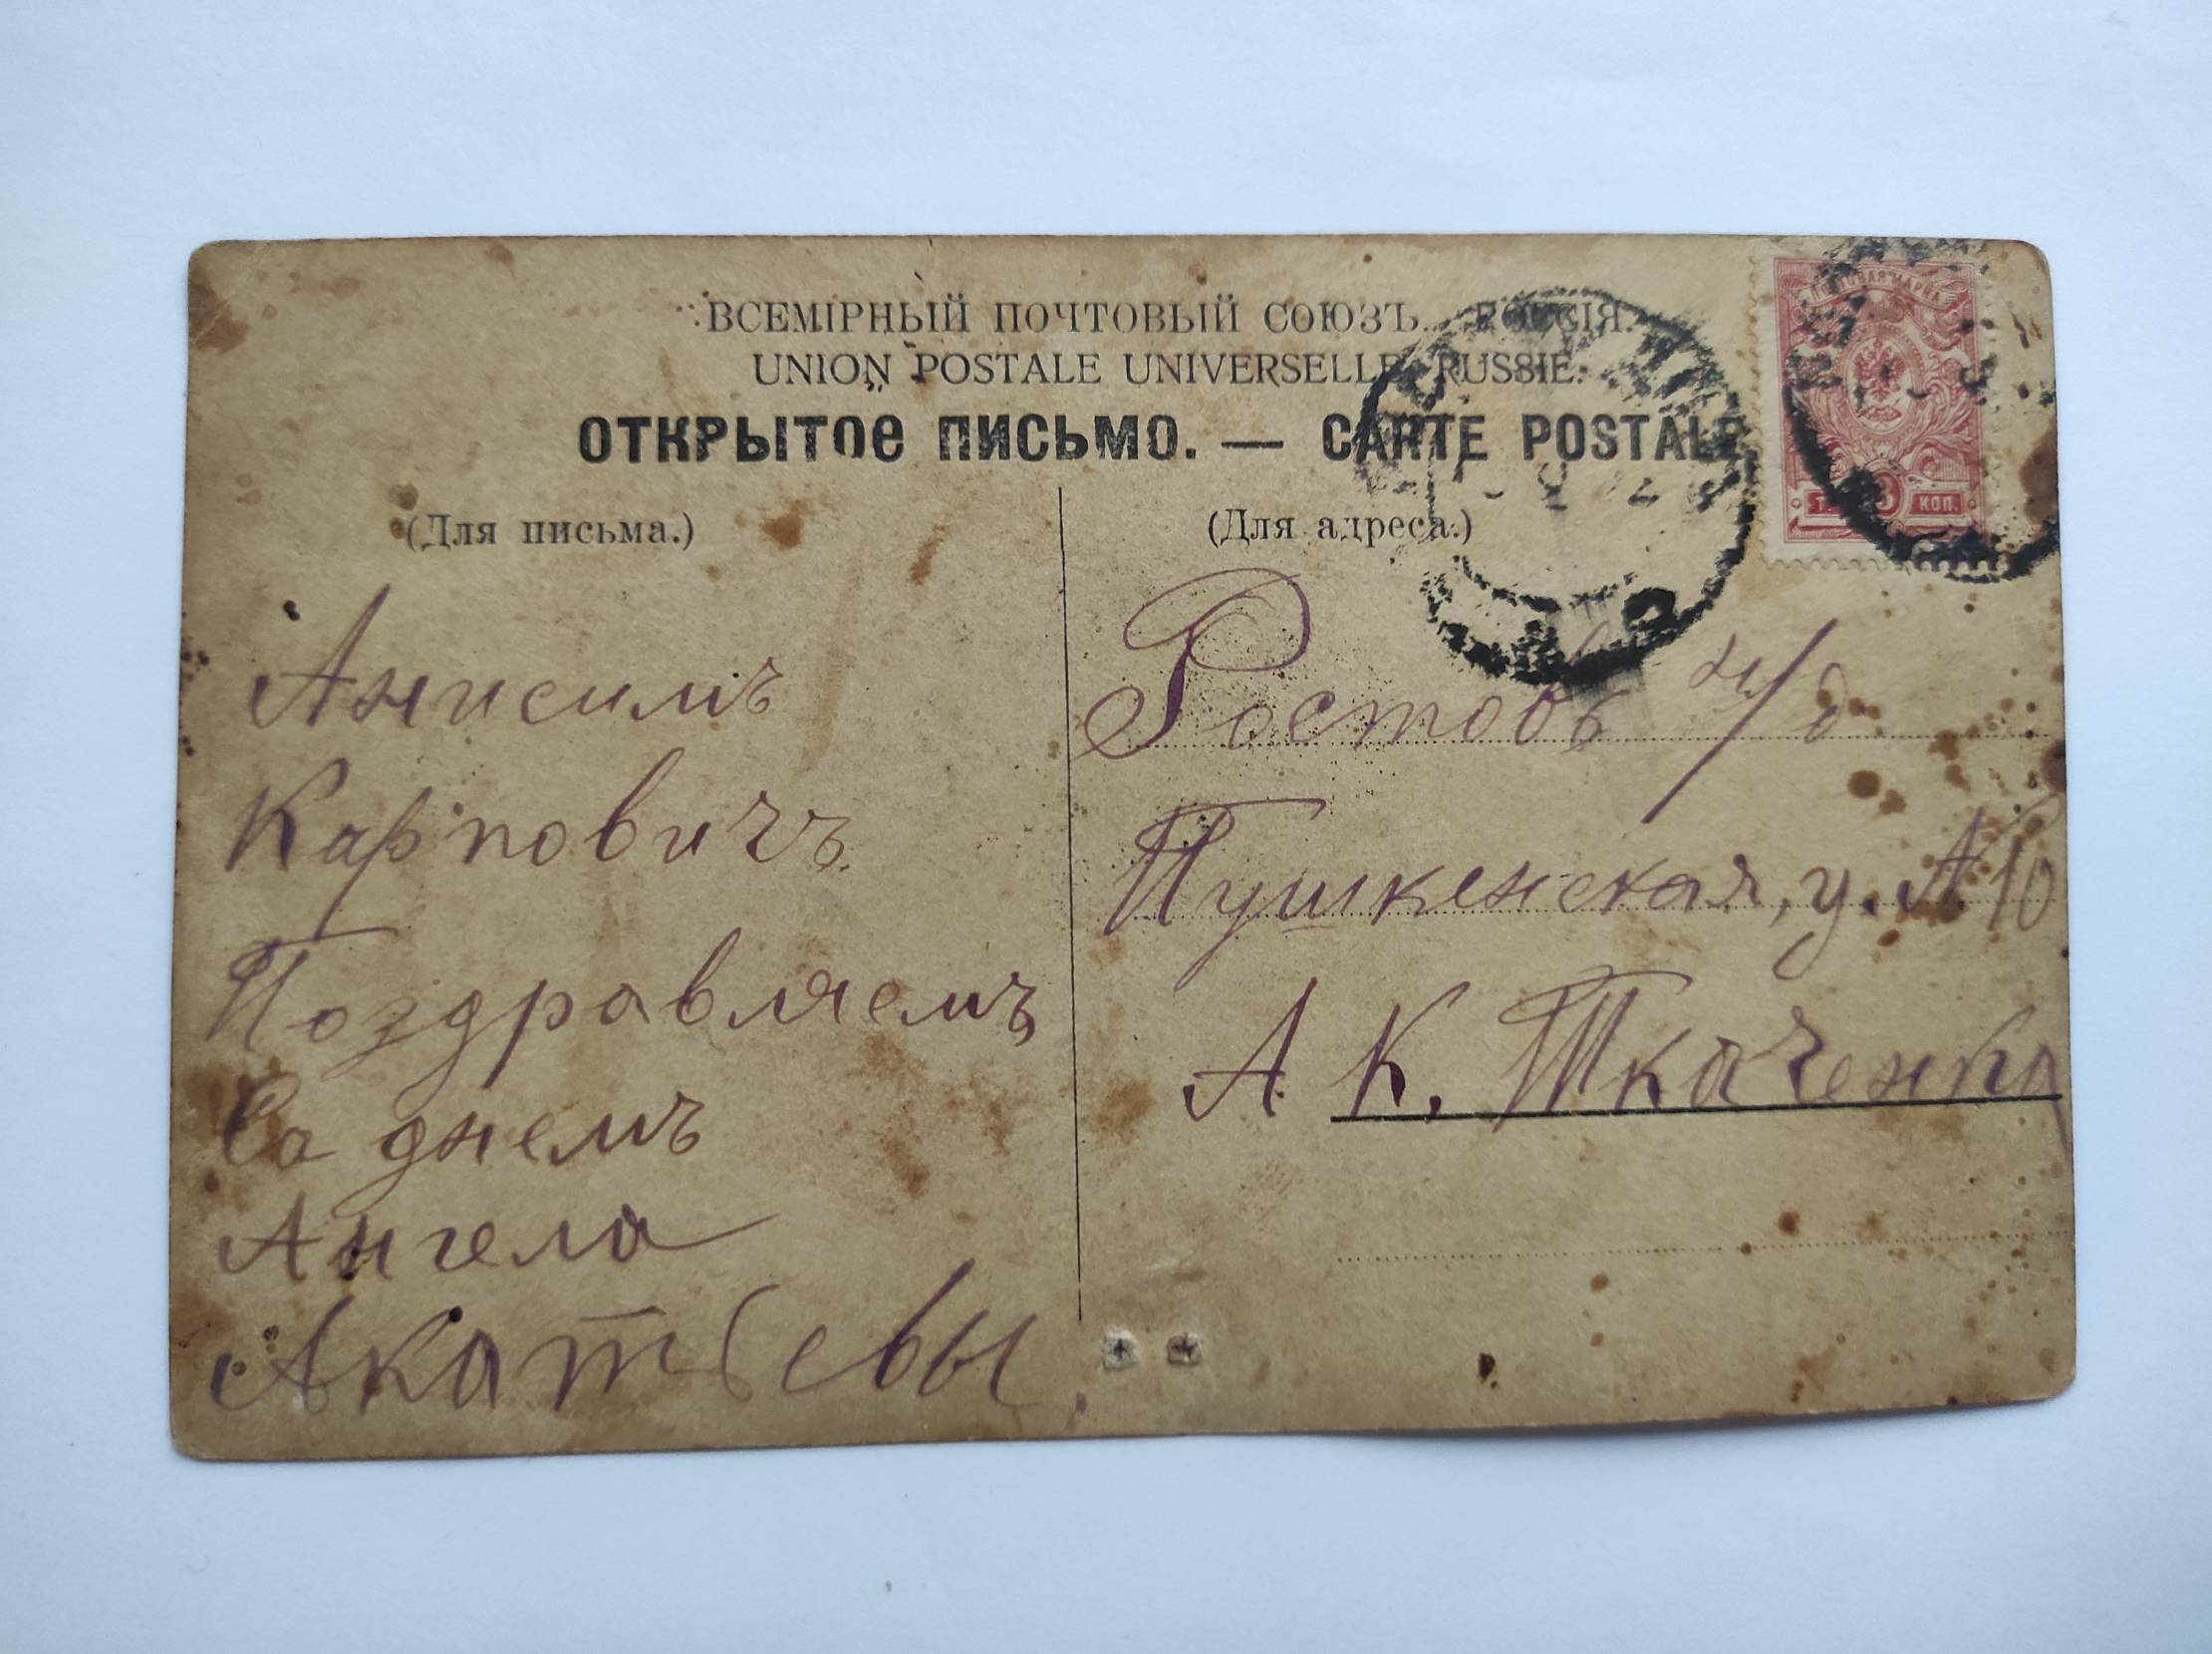 ВСЕМІРНЫЙ ПОЧТОВЫЙ СОЮЗЪ. РОССІЯ.
UNION POSTALE UNIVERSELLE RUSSIE.
ОТКРЫТОЕ ПИСЬМО. — CARTE POSTALE
(Для письма.)
Анисимъ
Карповичъ
Поздравляемъ
Са днемъ
Ангела
(Для адреса.)
Ростовъ н/д
Пушкенская, у. № 10
А К. Ткаченко
КОП.